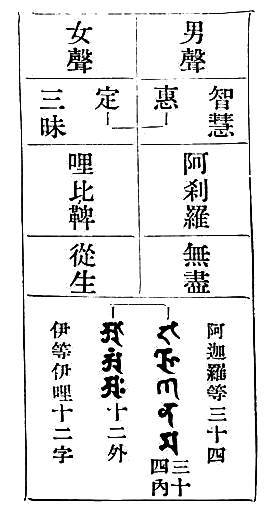 男聲
女聲
智慧
惠
定
三昧
阿刹羅
哩比鞞
無盡
從生
阿迦羅等三十四
三十四內
十二外
伊等伊哩十二字